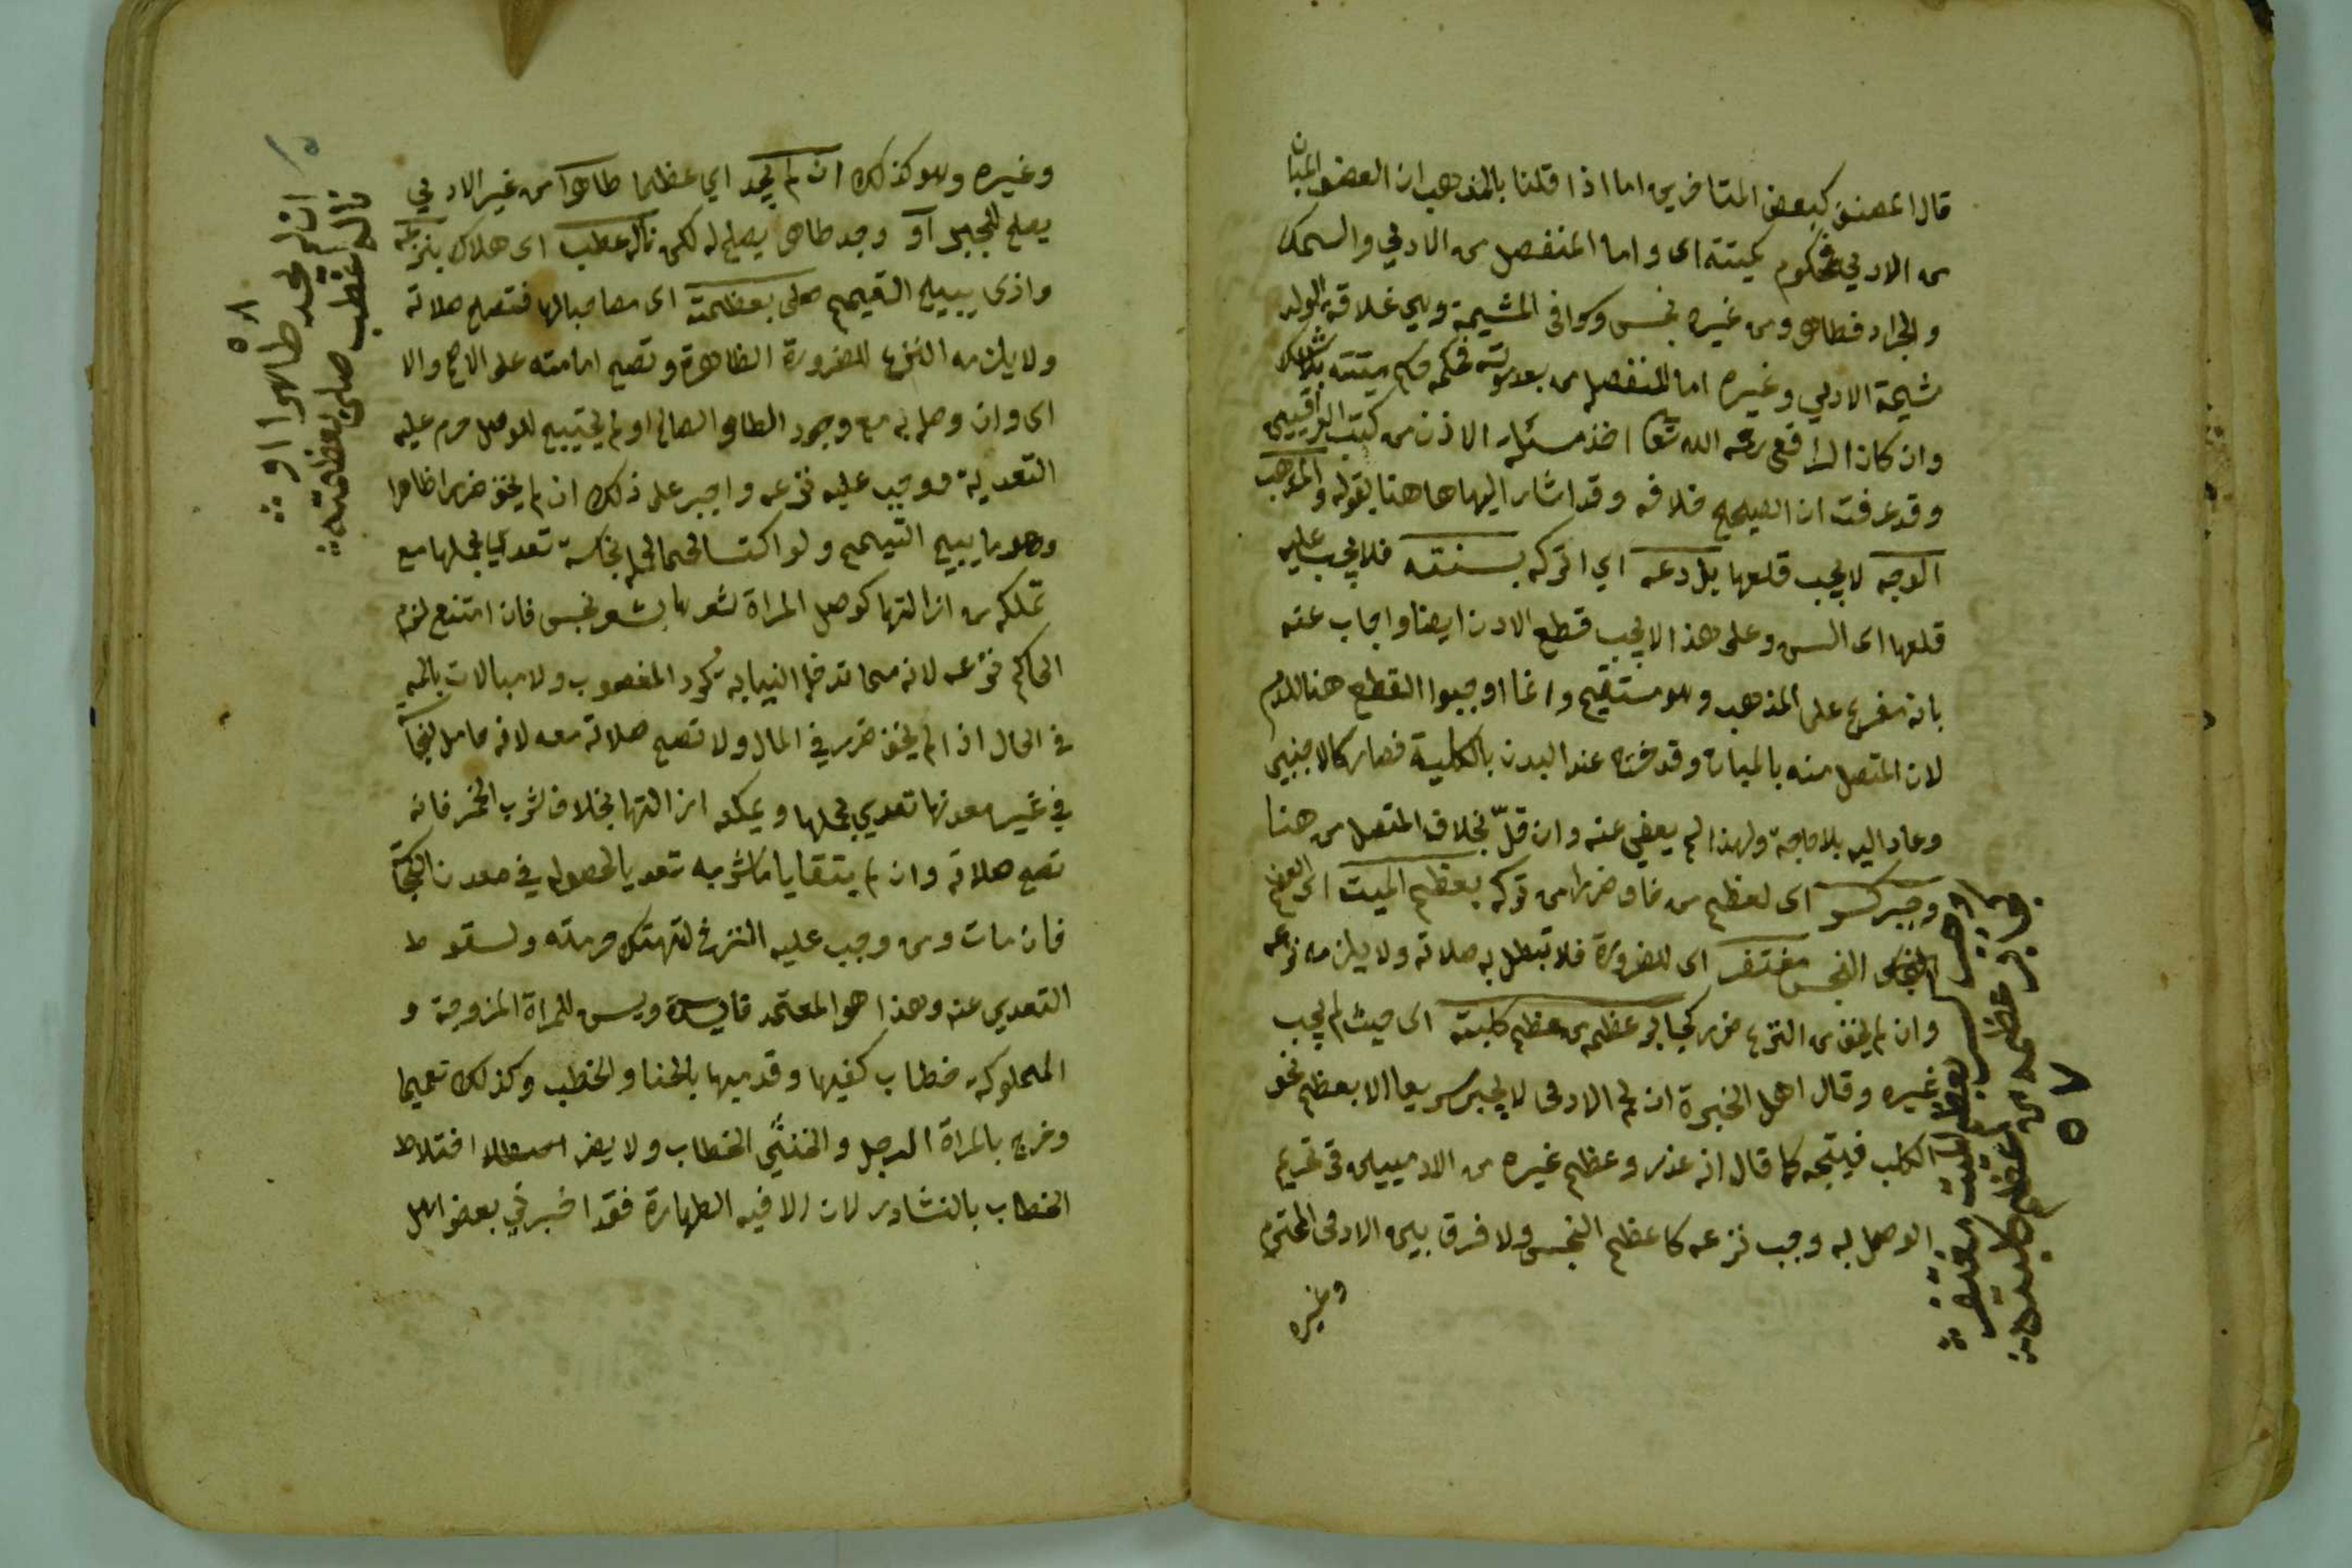 قال المصنف كبعض المتاخرين اما اذا قلنا بالمذهب ان العضو المبان
من الادمي محكوم كميتته اى واما المنفصل من الادمي والسمك
والجراد فطاهر ومن غيره نجس وكوافى المشيمة وهي غلاقة الولد
مشيمة الادمي وغيره اما المنفصل من بعد موته فحكمه حكم ميتته بلا شك
وان كان الرافعى رحمه الله تعا اخذ مسئلة الاذن من كتب العراقيين
وقد عرفت ان الصحيح خلافه وقد اشار اليها هاهنا بقوله والمذهب
الوجه لا يجب قلعها بل دعه اي اتركه بسنته فلا يجب عليه
قلعها اى السن وعلى هذا لا يجب قطع الاذن ايضا واجاب عنه
بانه مفرع على المذهب وهو مستقيم وانما اوجبوا القطع هنا للدم
لان المتصل منه بالمبان وقد خرج عند البدن بالكلية فصار كالاجنبي
وعاد اليه بلا حاجة ولهذا لم يعفي عنه وان قلّ بخلاف المتصل من هنا
وجبر كسر اى لعظم من خاف ضررا من تركه بعظم الميت اى العظم
النجس مغتفر اى للضرورة فلا تبطل به صلاته ولا يلزمه نزعه
وان لم يخف من النزع ضرر كجابر عظمه من عظم كلبته اى حيث لم يجب
غيره وقال اهل الخبرة ان لحم الادمى لا يجبر سريعا الا بعظم نحو
الكلب فيتجه كما قال انه عذر وعظم غيره من الادميين فى تحريم
الوصل به وجب نزعه كا عظم النجس ولا فرق بين الادمى المحترم
وغيره
او جبر كسر بعظم الميت اغتفر
كجابر عظمه من عظم كلبته
٥٧
وغيره وهو كذلك ان لم يجد اي عظما طاهرا من غير الادمي
يصلح للجبر آو وجد طاهر يصلح له لكن ناله عطب اى هلاك بنزعه
واذى يبيح التيمم صلى بعظمته اى مصاحبا لها فتصح صلاته
ولا يلزمه النزع للضرورة الظاهرة وتصح امامته على الاصح والا
اى وان وصله به مع وجود الطاهر الصالح او لم يحتيج للوصل حرم عليه
التعدية ووجب عليه نزعه واجبر على ذلك ان لم يخف ضررا ظاهرا
وهو ما يبيح التيمم ولو اكتسا لحما لحمله نجاسة تعديا بحملها مع
تملكه من ازالتها كوصل المراة شعرها بشعر نجس فان امتنع لزم
الحاكم نزعه لانه مما تدخله النيابه كرد المغصوب ولا مبالات بالمه
فى الحال اذا لم يخف ضرر في المال ولا تصح صلاته معه لانه حامل نجاسة
في غير معدنها تعدي بحملها ويمكنه ازالتها بخلاف شرب الخمر فانه
تصح صلاته وان لم يتقايا ما شربه تعديا لحصوله في معدن النجاسة
فان مات ومن وجب عليه النزع لتهتك حرمته ولسقوط
التعدي عنه وهذا هو المعتمد فايدة ويسن للمراة المزوجة و
المملوكة خضاب كفيها وقدميها بالحنا والخطب وكذلك تعميما
وخرج بالمراة الرجل والخنثي الخطاب ولا يضر اختلاط
الخطاب بالنشادر لان الا فيه الطهارة فقد اخبرني بعض اهل
ان لم يجد طاهرا او
ناله عطب صلى بعظمته
٥٨